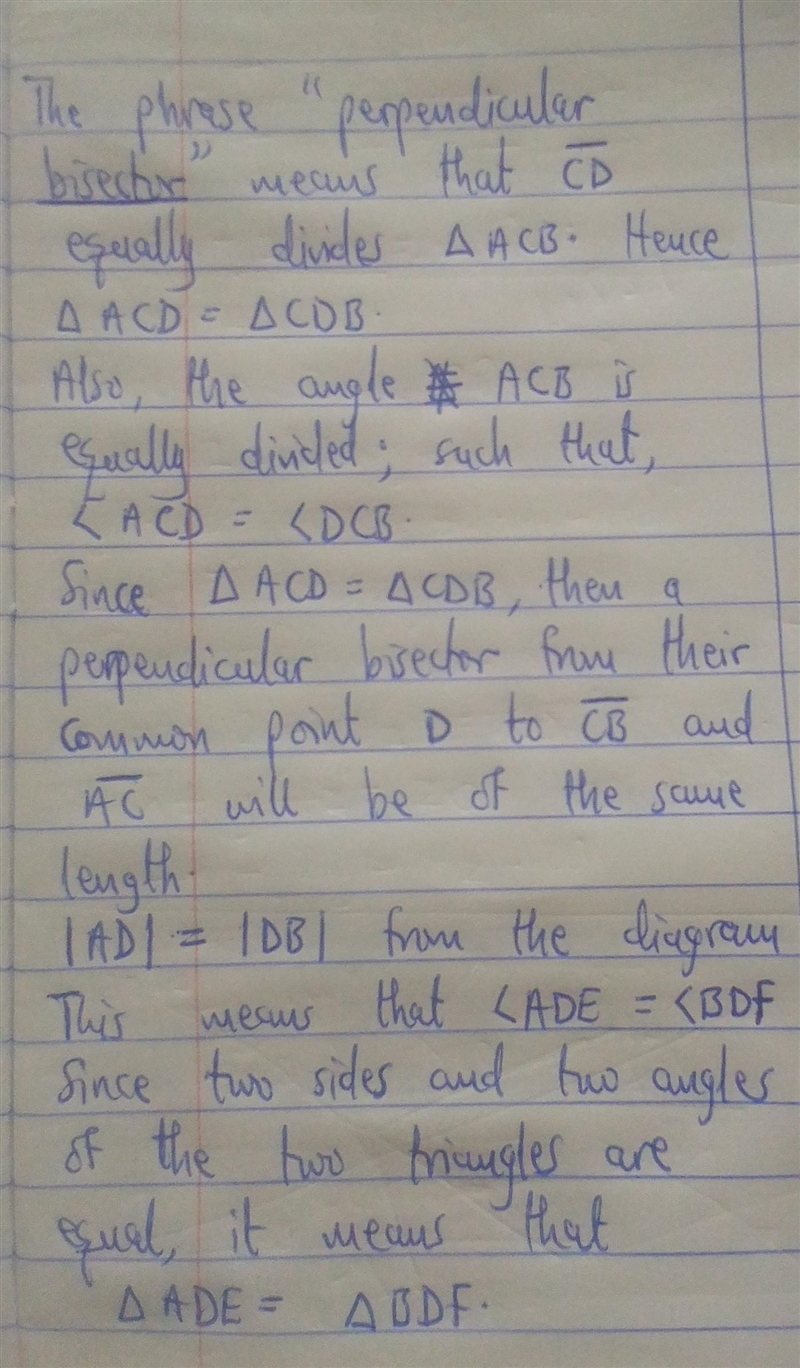 The phrase "perpendicular
bisector" means that C̅D̅
equally divides Δ ACB. Hence
Δ ACD = Δ CDB.
Also, the angle ACB is
equally divided; such that,
< ACD = < DCB.
Since Δ ACD = Δ CDB, then a
perpendicular bisector from their
common point D to C̅B̅ and
A̅C̅ will be of the same
length.
|AD| = |DB| from the diagram
This means that <ADE = <BDF
Since two sides and two angles
of the two triangles are
equal, it means that
Δ ADE = Δ BDF.